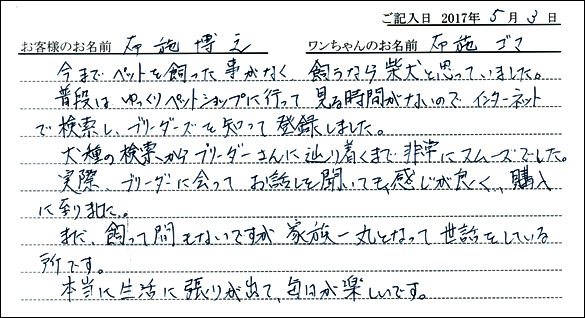 ご記入日 2017年 5月 3日
お客様のお名前 布施 博之 ワンちゃんのお名前 布施 ゴマ
今までペットを飼った事がなく 飼うなら柴犬と思っていました。
普段はゆっくりペットショップに行って 見る時間がないので インターネット
で検索し、ブリーダーズを知って 登録しました。
犬種の検索からブリーダーさんに辿り着くまで 非常にスムーズでした。
実際、ブリーダに会って お話しを聞いても、感じが良く、購入
に到りました。
まだ、飼って間もないですが 家族一丸となって 世話をしている
所です。
本当に生活に張りが出て、毎日が楽しいです。